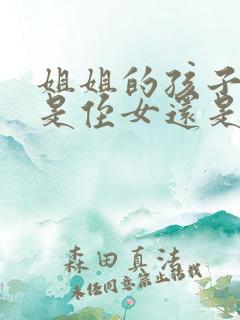 姐姐的孩子
是侄女還是
森田真法
未經同意禁止轉載